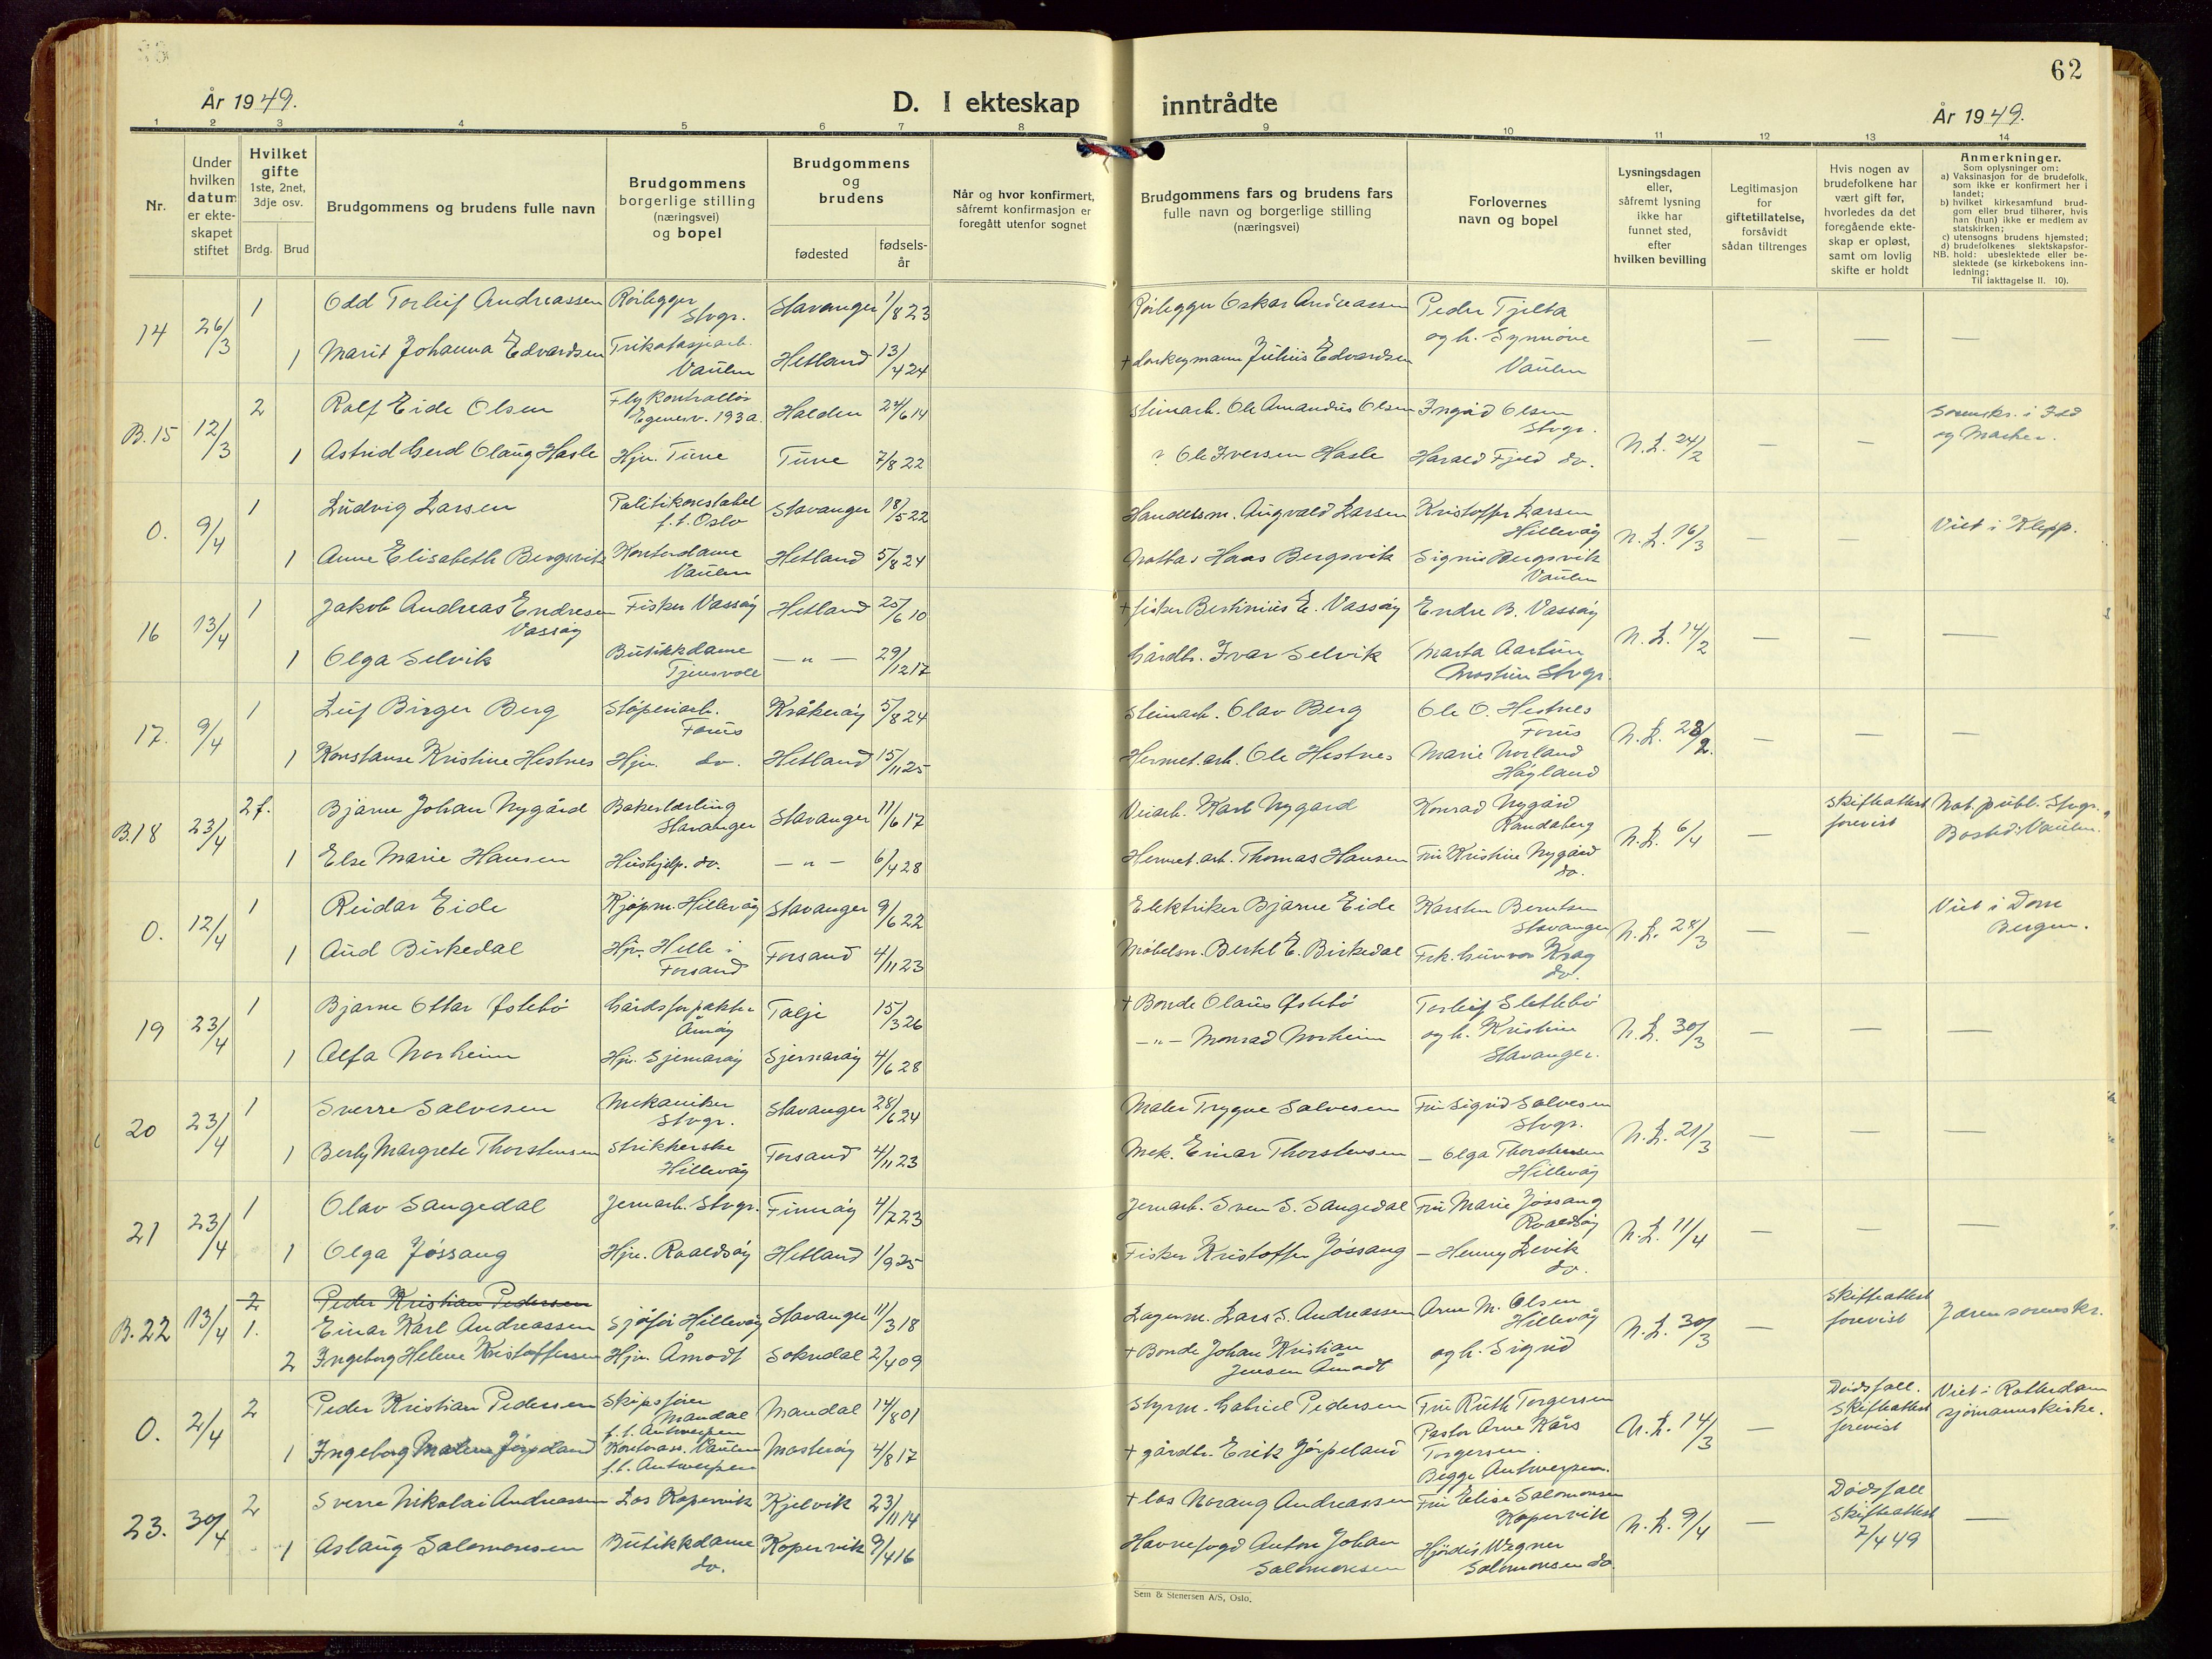 62
År 1949.
D. I ekteskap inntrådte
År 1949.
1 2 3 4 5 6 7 8 9 10 11 12 13 14
Nr.
Under hvilken datum er ekteskapet stiftet
Hvilket gifte 1ste, 2net, 3dje osv.
Brdg. Brud
Brudgommens og brudens fulle navn
Brudgommens borgerlige stilling (næringsvei) og bopel
Brudgommens og brudens
fødested
fødselsår
Når og hvor konfirmert, såfremt konfirmasjon er foregått utenfor sognet
Brudgommens fars og brudens fars fulle navn og borgerlige stilling (næringsvei)
Forlovernes navn og bopel
Lysningsdagen eller, såfremt lysning ikke har funnet sted, efter hvilken bevilling
Legitimasjon for giftetillatelse, forsåvidt sådan tiltrenges
Hvis nogen av brudefolkene har vært gift før, hvorledes da det foregående ekteskap er opløst, samt om lovlig skifte er holdt
Anmerkninger.
Som oplysninger om:
a) Vaksinasjon for de brudefolk, som ikke er konfirmert her i landet;
b) hvilket kirkesamfund brudgom eller brud tilhører, hvis han (hun) ikke er medlem av statskirken;
c) utensogns brudens hjemsted;
d) brudefolkenes slektskapsforhold: ubeslektede eller beslektede (se kirkebokens innledning;
NB.
Til iakttagelse II. 10).
14 26/3 1 Odd Torleif Andreassen Rørlegger Stvgr. Stavanger 1/8 23 Rørlegger Oskar Andreassen Peder Tjelta og h. Synnøve Vaulen — — —
1 Marit Johanna Edvardsen Trikotasjearb. Vaulen Hetland 13/4 24 + donkeymann Julius Edvardsen
B.15 12/3 2 Rolf Eide Olsen Flykontrollør Egenesv. 193a. Halden 24/6 14 Steinarb. Ole Amandus Olsen Ingrid Olsen Stvgr. N.L. 24/2 — — Sorenskr. i Idd og Marker.
1 Astrid Gerd Olaug Hasle Hjv. Tune Tune 7/8 22 ? Ole Iversen Hasle Harald Fjeld do.
0. 9/4 1 Ludvig Larsen Politikonstabel f.t. Oslo Stavanger 18/5 22 Handelsm. Augvald Larsen Kristoffer Larsen Hillevåg N.L. 16/3 — — Viet i Klepp.
1 Anne Elisabeth Bergsvik Kontordame Vaulen Hetland 5/8 24 Hans Bergsvik Signe Bergsvik Vaulen
16 13/4 1 Jakob Andreas Endresen Vassøy Fisker Vassøy Hetland 25/6 10 + fisker Bertinius E. Vassøy Endre B. Vassøy N.L. 14/2 — — —
1 Olga Selvik Butikkdame Tjensvoll — " — 29/12 17 Gårdbr. Ivar Selvik Marta Aartun Mostun Stvgr.
17. 9/4 1 Leif Birger Berg Støperiarb. Forus Kråkerøy 5/8 24 Steinarb. Olav Berg Ole O. Hestnes Forus N.L. 28/2. — — —
1 Konstanse Kristine Hestnes Hjv. do. Hetland 15/11 25 Hermet.arb. Ole Hestnes Marie Norland Høyland
B.18 23/4 2f. Bjarne Johan Nygård Bakerlærling Stavanger Stavanger 11/6 17 Veiarb. Karl Nygård Konrad Nygård Randaberg N.L. 6/4 — Skifteattest forevist Not. publ. Stvgr. Bosted: Vaulen.
1 Else Marie Hansen Hushjelp. do. — " — 6/4 28 Hermet.arb. Thomas Hansen Fru Kristine Nygård do.
0. 12/4 1 Reidar Eide Kjøpm. Hillevåg Stavanger 9/6 22 Elektriker Bjarne Eide Karsten Berntsen Stavanger N.L. 24/3 — — Viet i Dom Bergen.
1 Aud Birkedal Hjv. Helle i Forsand Forsand 4/11 23 Møbelsn. Bertel E. Birkedal Frk. Gunvor Krag do.
19 23/4 1 Bjarne Ottar Østebø Gårdsforpakter Åmøy Talje 15/3 26 + Bonde Olaus Østebø Torleif Slettebø og h. Kristine Stavanger. N.L. 30/3 — — —
1 Alfa Norheim Hjv. Sjernarøy Sjernarøy 4/6 28 — " — Monrad Norheim
20 23/4 1 Sverre Salvesen Mekaniker Stvgr. Stavanger 28/6 24 Maler Trygve Salvesen Fru Sigrid Salvesen Stvgr. N.L. 21/3 — — —
1 Berly Margrete Thorstensen Strikkerske Hillevåg Forsand 4/11 23 Mek. Einar Thorstensen — Olga Thorstensen Hillevåg
21 23/4 1 Olav Sangedal Jernarb. Stvgr. Finnøy 4/7 23 Jernarb. Sven S. Sangedal Fru Marie Jøssang Roaldsøy N.L. 11/4 — — —
1 Olga Jøssang Hjv. Roaldsøy Hetland 1/9 25 Fisker Kristoffer Jøssang — Henny Levik do.
B.22 13/4 2 Peder Kristian Pedersen
1. Einar Karl Andreassen Sjåfør Hillevåg Stavanger 11/3 18 Lagerm. Lars S. Andreassen Arne M. Olsen Hillevåg og h. Sigrid N.L. 30/3 — Skifteattest forevist Jæren sorenskr.
2 Ingeborg Helene Kristoffersen Hjv. Åmodt Sokndal 2/4 09 + Bonde Johan Kristian Jensen Åmodt
0. 2/4 2 Peder Kristian Pedersen Skipsfører Mandal f.t. Antwerpen Mandal 14/8 01 Styrm. Gabriel Pedersen Fru Ruth Torgersen N.L. 14/3 — Dødsfall. Skifteattest forevist Viet i Rotterdam sjømannskirke.
1 Ingeborg Malene Jørpeland Kontorass. Vaulen f.t. Antwerpen Mosterøy 4/8 17 + gårdbr. Erik Jørpeland Pastor Arne Kårs Torgersen. Begge Antwerpen.
23. 30/4 2 Sverre Nikolai Andreassen Los Kopervik Kjelvik 23/11 14 + los Norang Andreassen Fru Elise Salomonsen Kopervik N.L. 9/4 — Dødsfall Skifteattest 2/4 49 —
1 Aslaug Salomonsen Butikkdame do. Kopervik 9/4 16 Havnefogd Anton Johan Salomonsen Hjørdis Wegner Salomonsen do.
Sem & Stenersen A/S, Oslo.